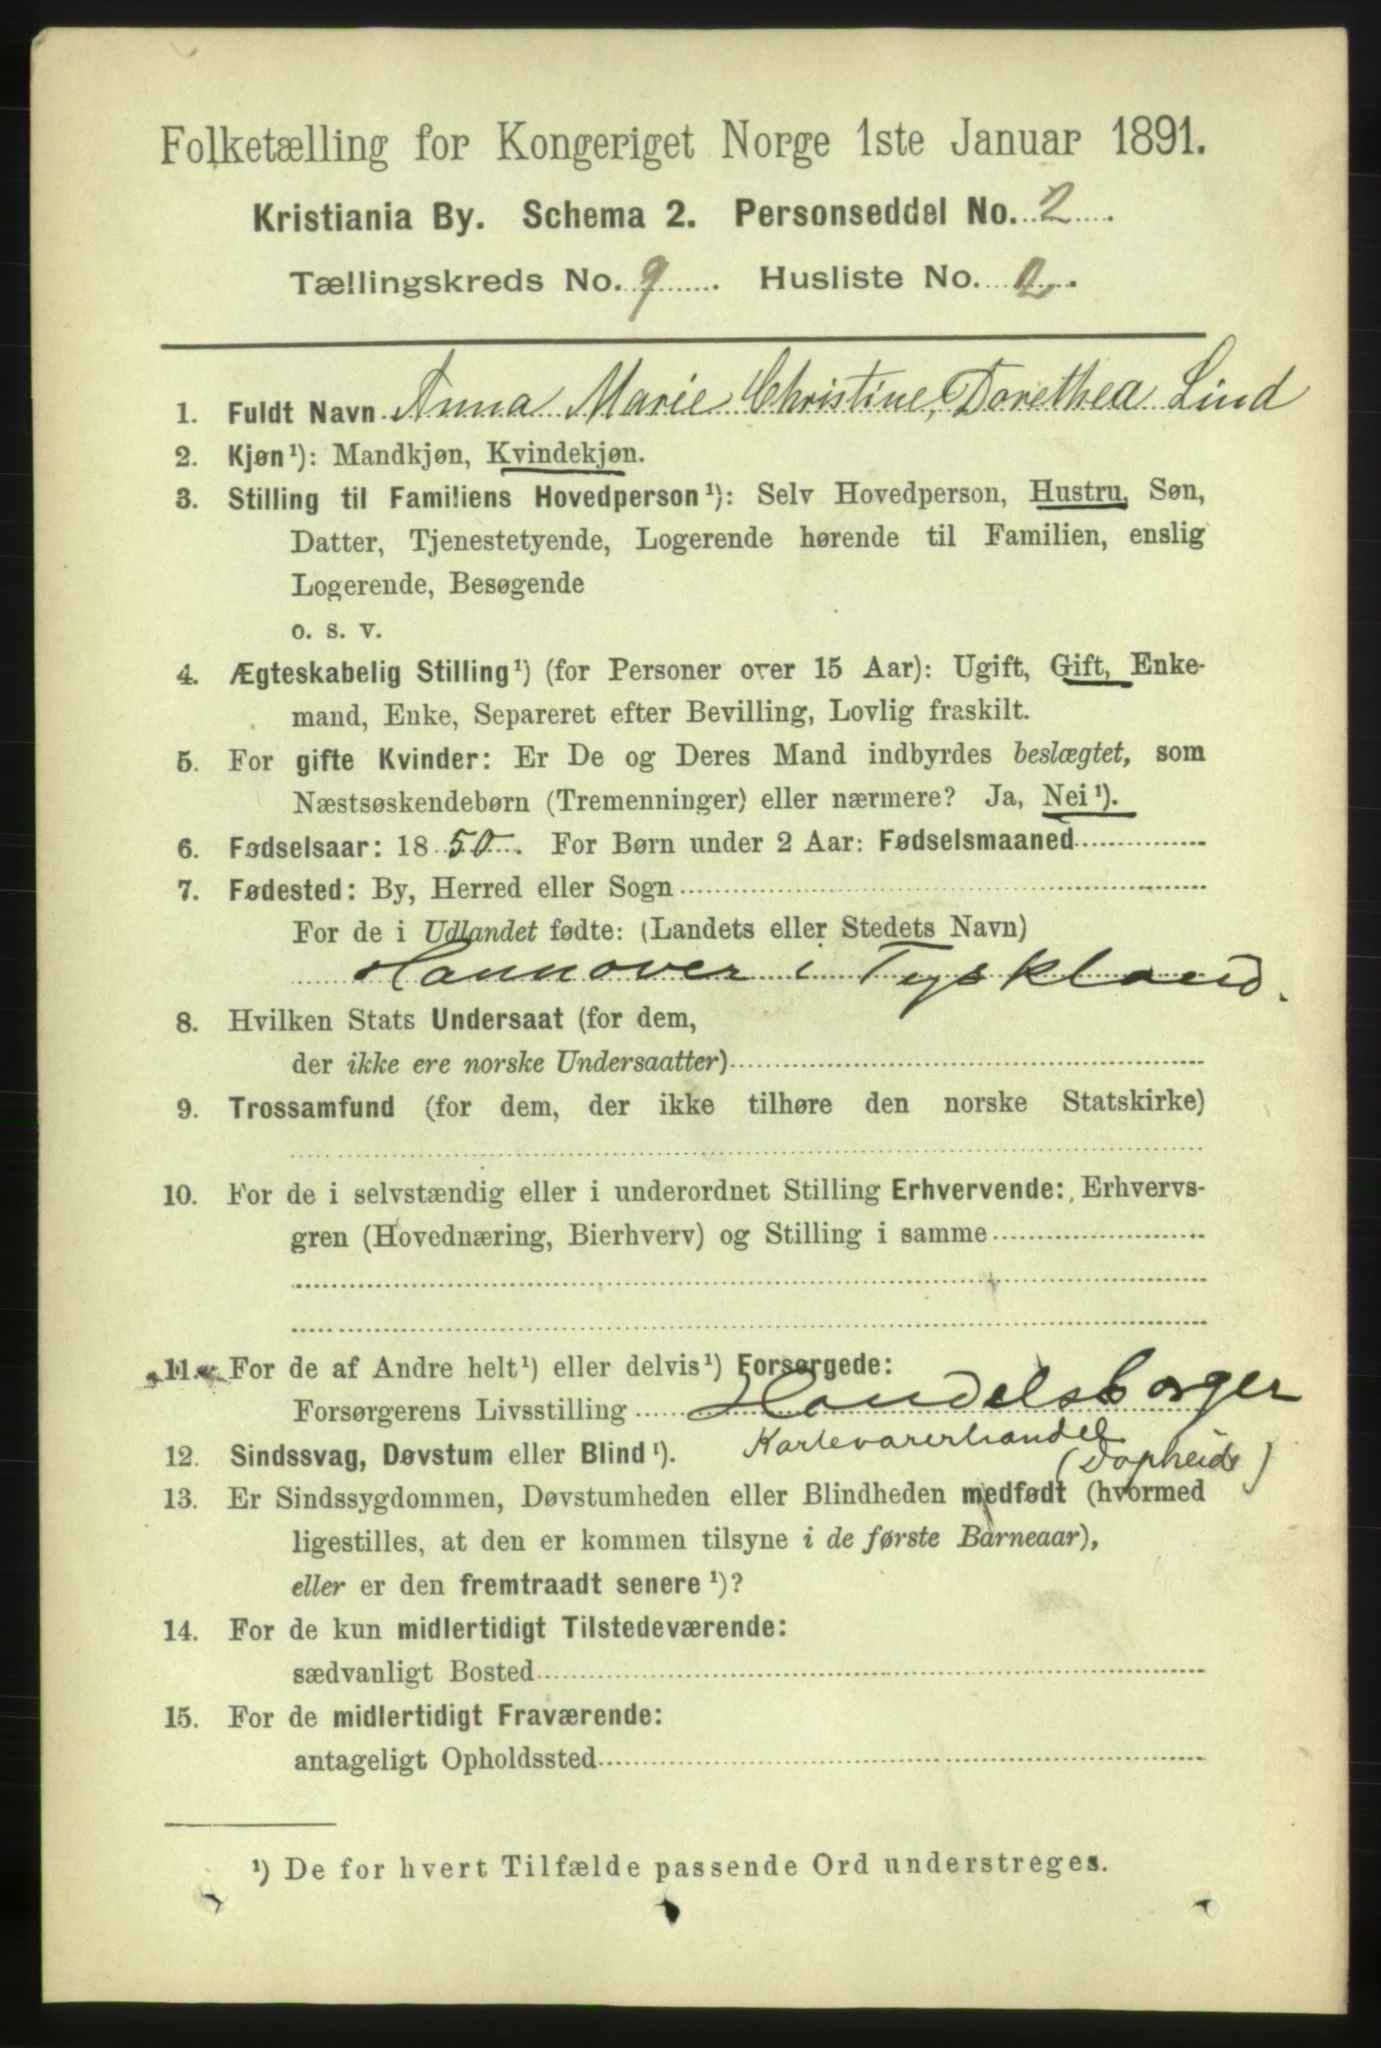 Folketælling for Kongeriget Norge 1ste Januar 1891.
Kristiania By. Schema 2. Personseddel No. 2.
Tællingskreds No. 9. Husliste No. 2.
1. Fuldt Navn Anna Marie Christine, Dorethea Lind
2. Kjøn¹): Mandkjøn, Kvindekjøn.
3. Stilling til Familiens Hovedperson¹): Selv Hovedperson, Hustru, Søn,
Datter, Tjenestetyende, Logerende hørende til Familien, enslig
Logerende, Besøgende
o. s. v.
4. Ægteskabelig Stilling¹) (for Personer over 15 Aar): Ugift, Gift, Enke-
mand, Enke, Separeret efter Bevilling, Lovlig fraskilt.
5. For gifte Kvinder: Er De og Deres Mand indbyrdes beslægtet, som
Næstsøskendebørn (Tremenninger) eller nærmere? Ja, Nei¹).
6. Fødselsaar: 1850. For Børn under 2 Aar: Fødselsmaaned
7. Fødested: By, Herred eller Sogn
For de i Udlandet fødte: (Landets eller Stedets Navn)
Hannover i Tyskland.
8. Hvilken Stats Undersaat (for dem,
der ikke ere norske Undersaatter)
9. Trossamfund (for dem, der ikke tilhøre den norske Statskirke)
10. For de i selvstændig eller i underordnet Stilling Erhvervende: Erhvervs-
gren (Hovednæring, Bierhverv) og Stilling i samme
11. For de af Andre helt¹) eller delvis¹) Forsørgede:
Forsørgerens Livsstilling Handelsborger
Kortevarerhandel
12. Sindssvag, Døvstum eller Blind¹).
13. Er Sindssygdommen, Døvstumheden eller Blindheden medfødt (hvormed
ligestilles, at den er kommen tilsyne i de første Barneaar),
eller er den fremtraadt senere¹)?
14. For de kun midlertidigt Tilstedeværende:
sædvanligt Bosted
15. For de midlertidigt Fraværende:
antageligt Opholdssted
¹) De for hvert Tilfælde passende Ord understreges.